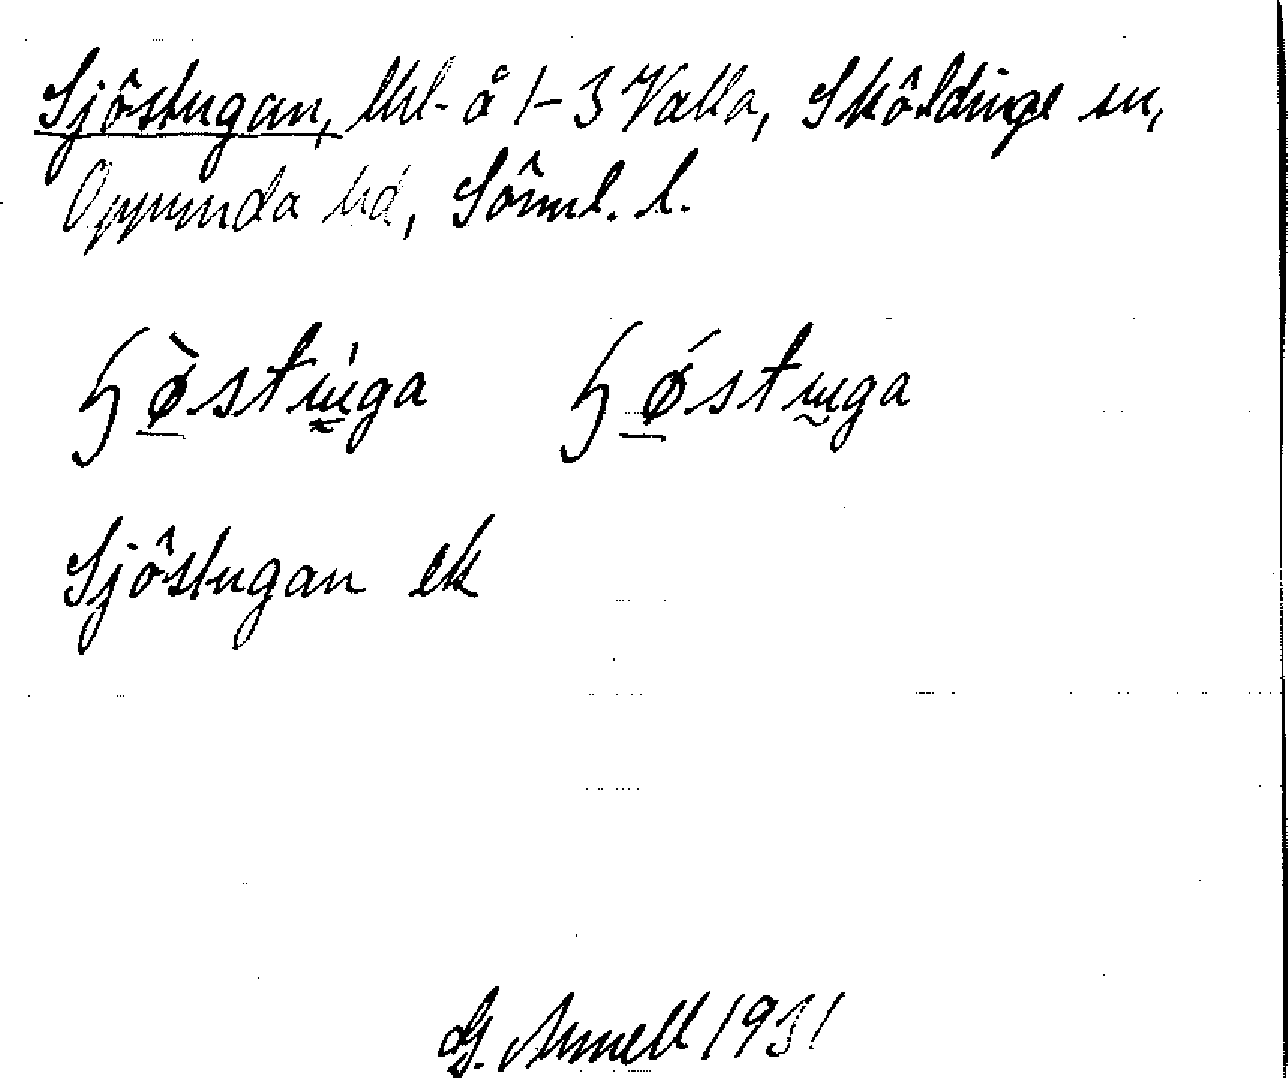 Sjöstugan, lht å 1-3 Valla, Sköldinge sn,
Oppunda hd, Sörml. l.
ɧø̀stu̇ga ɧǿstuga
Sjöstugan ek
G. Annell 1931